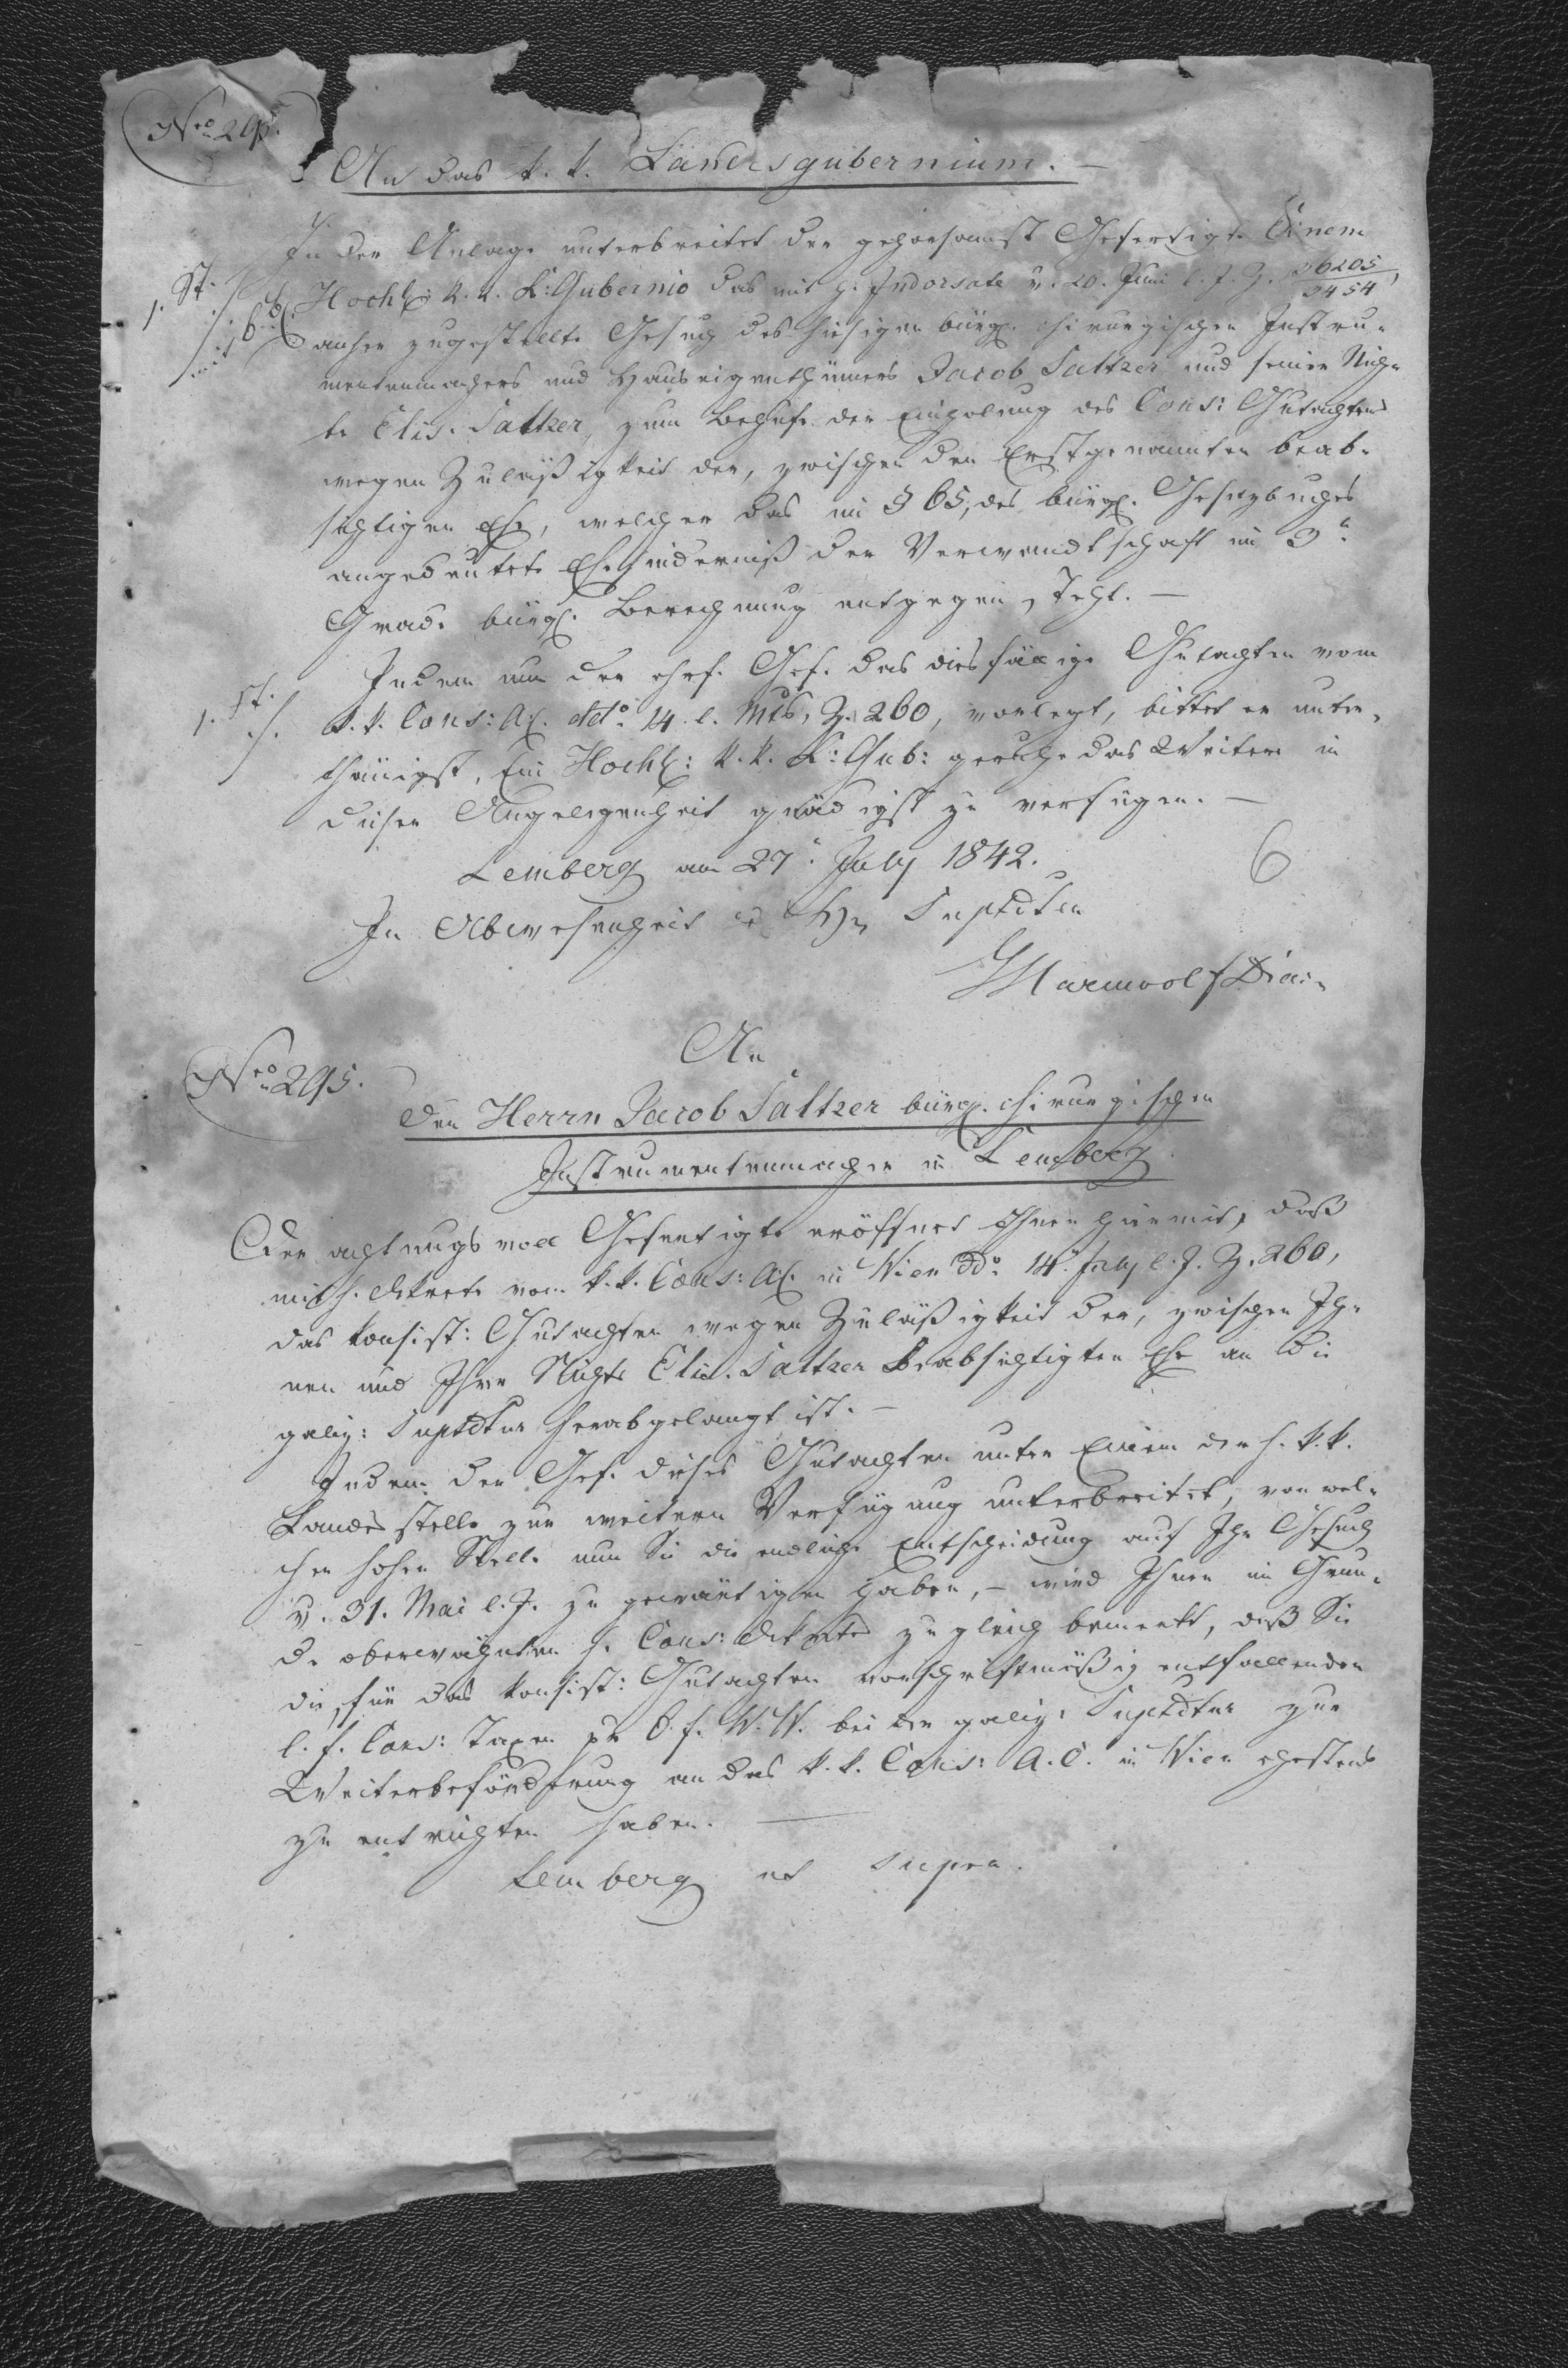 Nro 295.
An das k. k. Landesgubernium. —
In der Anlage unterbreitet der gehorsamst Gefertigte Einem
1. St. ./. Hochl: k. k. L: Gubernio das mit h. Indorsate v. 20. Juni l. J. Z. 36205/3454,
./. mit 6
anher zugestellte Gesuch des hiesigen bürgl. chirurgischen Instru-
mentenmachers und Hauseigenthümers Jacob Saltzer und seiner Nich-
te Elis. Saltzer, zum Behufe der Einholung des Cons: Gutachtens
wegen Zuläßigkeit der, zwischen den Erstgenannten beab-
sichtigen Ehe, welcher das im § 65, des bürgl. Gesetzbuches
angedeutete Ehehinderniß der Verwandtschaft im 3n
Grade bürgl. Berechnung entgegen steht. —
Indem nun der ehrf. Gef. das diesfällige Gutachten vom
1. St. ./. k. k. Cons: A.C. ddo 14. l. Mts, Z. 260, vorlegt, bittet er unter-
thänigst, Ein Hochl: k. k. L: Gub: geruhe das Weitere in
dieser Angelegenheit gnädigst zu verfügen. —
Lemberg am 27n July 1842.
6
In Abwesenheit d. H. Suptdten
Diac.
Nro 295.
An
den Herrn Jacob Saltzer bürgl. chirurgischen
Instrumentenmacher in Lemberg
Der achtungsvoll Gefertigte eröffnet Ihnen hiermit, daß
mit h. Dekrete vom k. k. Cons: A.C. in Wien ddo 14. July l. J. Z. 260,
das konsist: Gutachten wegen Zuläßigkeit der, zwischen Ih-
nen und Ihrer Nichte Elis. Saltzer beabsichtigten Ehe an die
galiz: Suptdtur herabgelangt ist. —
Indem der Gef. dieses Gutachten unter Einem der h. k. k.
Landesstelle zur weitern Verfügung unterbreitet, von wel-
cher hohen Stelle nun Sie die endliche Entscheidung auf Ihr Gesuch
v. 31. Mai l. J. zu gewärtigen haben, — wird Ihnen im Grun-
de oberwähnten h. Cons: Dekretes zugleich bemerkt, daß Sie
die, für das konsist: Gutachten vorschriftmäßig entfallenden
l. f. Cons: Taxen pr 6 f. W. W. bei der galiz: Suptdtur zur
Weiterbeförderung an das k. k. Cons: A. C. in Wien ehestens
zu entrichten haben. —
Lemberg ut supra.